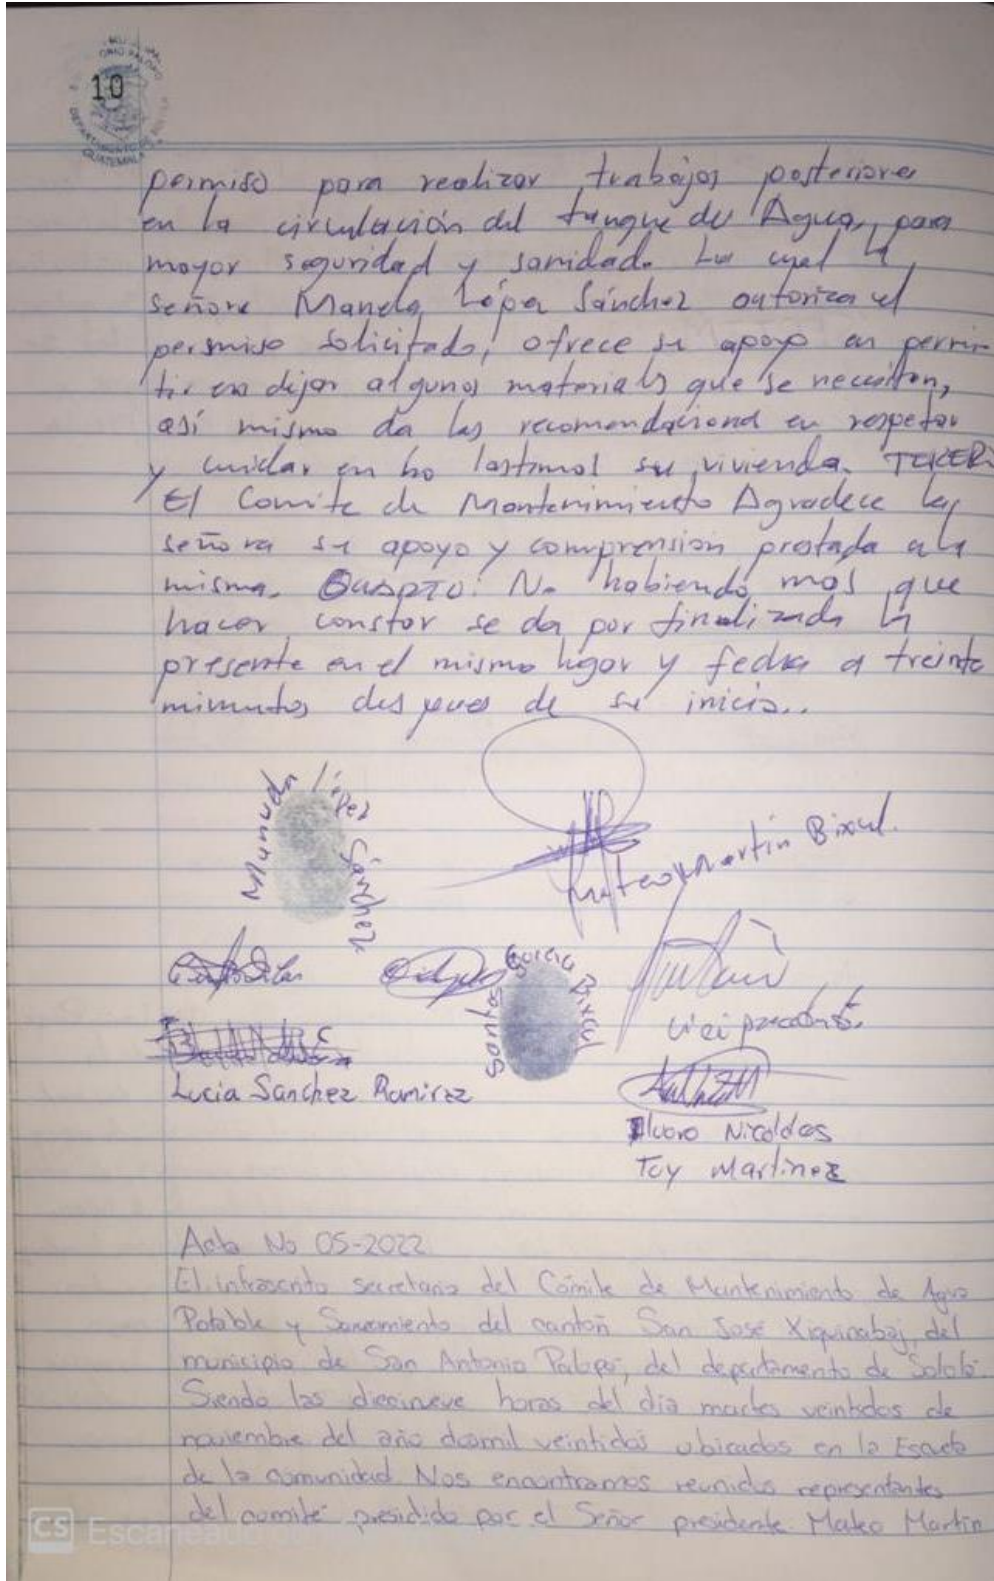 10
DEPARTAMENTO DE
GUATEMALA
permiso para realizar trabajos posteriores
en la circulación del tanque de Agua, para
mayor seguridad y sanidad. La cual la
señora Manuela López Sánchez autoriza el
permiso solicitado, ofrece su apoyo en permi-
tir en dejar algunos materials que se necesiten,
así mismo da las recomendaciones en respetar
y cuidar en no lastimar su vivienda. TERCER:
El Comite de Mantenimiento Agradece la
señora su apoyo y comprensión prestada a la
misma. CUARTO: No habiendo mas que
hacer constar se da por finalizada la
presente en el mismo lugar y fecha a treinta
minutos despues de su inicio..
Manuela López Sánchez
Mateo Martin Bixcul.
Santos García Bixcul
Vici precidente.
Lucia Sanchez Ramirez
Alvaro Nicoldas
Tuy Martinez
Acta No 05-2022
El infrascrito secretario del Cómite de Mantenimiento de Agua
Potable y Saneamiento del cantón San José Xiquinabaj, del
municipio de San Antonio Palopó, del departamento de Sololá.
Siendo las diecinueve horas del día martes veintidos de
noviembre del año dosmil veintidos ubicados en la Escuela
de la comunidad. Nos encontramos reunidos representantes
del comité presidido por el Señor presidente Mateo Martin
CS Escaneado